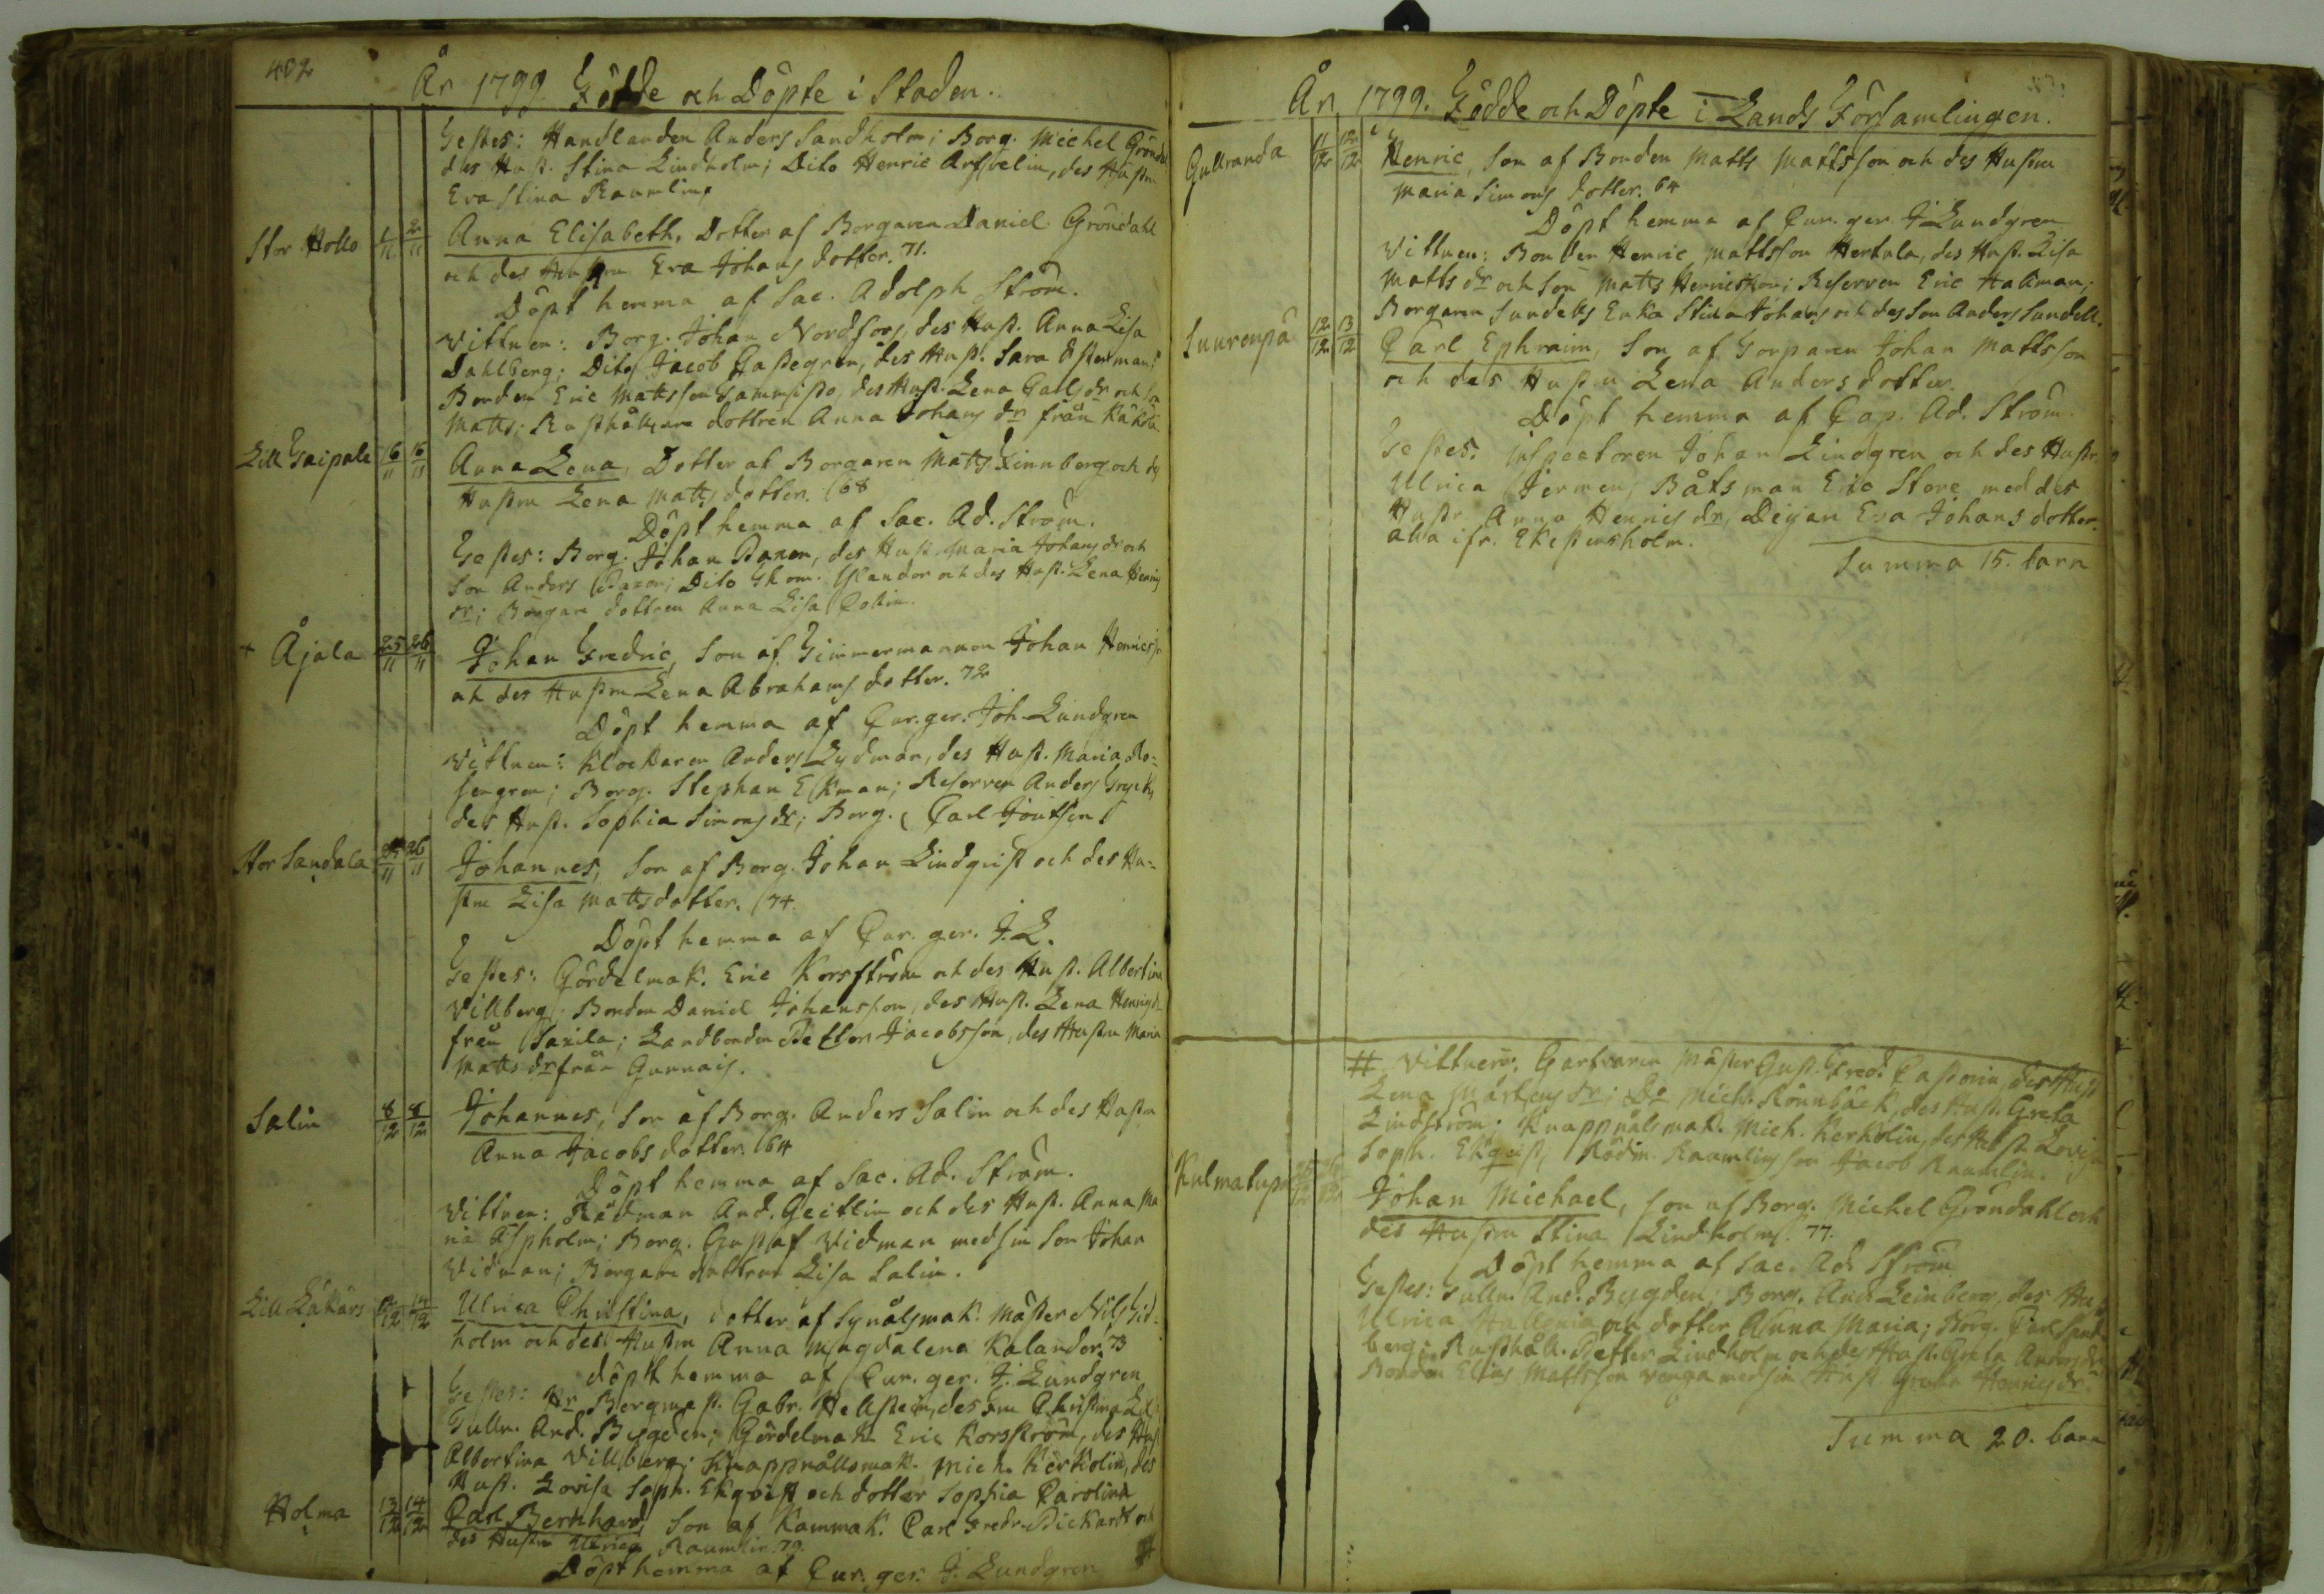 402
År 1799. Födde och Döpte i Staden.
Testes: Handlanden Anders Sandholm; Borg. Michel Gröndal
des Hust. Stina Lindholm; Dito Henric Arfvelin, des Hustru
Eva Stina Raumlin
Stor Hollo 1/11 2/11 Anna Elisabeth, Dotter af Borgaren Daniel Gröndahl
och des Hustru Eva Johans dotter. 71.
Döpt hemma af Sac. Adolph Ström.
Vittnen: Borg. Johan Nordfors, des Hust. Anna Lisa
Dahlberg; Dito Jacob des Hust. Sara Österman;
Bonden Eric Mattsson des Hust. Lena dr och Son
Matts; Rusthållare dottren Anna Johans dr från
Lill Gaipale 16/11 16/11 Anna Lena, Dotter af Borgaren Matts Finnberg och des
Hustru Lena Matts dotter. 68
Döpt hemma af Sac. Ad. Ström.
Testes: Borg. Johan Paxen, des Hust. Maria Johans dr och
Son Anders Paxen; Dito Thom. Ylander och des Hust. Lena Henrics
dr; Borgare dottren Anna Lisa
+ Äjälä 25/11 26/11 Johan Fredric, Son af Timmermannen Johan Henricss.
och des Hustru Lena Abrahams dotter. 72
Döpt hemma af Cur. ger. Joh. Lundgren
Vittnen: Klockaren Anders Lydman, des Hust. Maria Ro=
sengren; Borg. Stephan Ekman; Reserven Anders
des Hust. Sophia Simons dr; Borg. Carl
Stor Sandala 25/11 26/11 Johannes, Son af Borg. Johan Lindqvist och des Hu=
stru Lisa Mattsdotter. 74.
Döpt hemma af Cur. ger. J. L.
Testes: Gördelmak. Eric Korsström och des Hust. Albertina
Villberg; Bonden Daniel Johansson, des Hust. Lena Henrics dr
från Saxila; Landbonden Petter Jacobsson, des Hustru Maria
Matts dr från Gunnais.
Salin 8/12 8/12 Johannes, Son af Borg. Anders Salin och des Hustru
Anna Jacobs dotter. 64
Döpt hemma af Sac. Ad. Ström.
Vittnen: Rådman And. Geitlin och des Hust. Anna Ma
ria Aspholm; Borg. Gustaf Vidman med sin Son Johan
Vidman; Borgare dottren Lisa Salin.
Lill 14/12 Ulrica Christina, dotter af Synålsmak. Mäster Nils Sid=
holm och des Hustru Anna Magdalena Kalander. 73
döpt hemma af Cur. ger. J. Lundgren
Testes: Hr Borgmäst. Gabr. Hellsten, des Fru Christina
Tulln. And. Bygden; Gördelmak. Eric Korsström, des Hust
Albertina Villberg; Knappnålsmak. Mich. Kerkolin, des
Hust. Lovisa Soph. Ekqvist och dotter Sophia Carolina
Holma 13/12 14/12 Carl Bernhard, Son af Kammak. Carl Fredr. Pickardt och
des Hustru Ulrica Raumlin. 79.
Döpt hemma af Cur. ger. J. Lundgren #
År 1799. Födde och Döpte i Lands Församlingen.
Gullranda 11/12 12/12 Henric, Son af Bonden Matts Mattsson och des Hustru
Maria Simons dotter. 64
Döpt hemma af Cur. ger. J. Lundgren
Vittnen: Bonden Henric Mattsson Hertula, des Hust. Lisa
Matts dr och Son Matts Henricsson; Reserven Eric Hakman;
Borgaren Sundells Enka Stina Johans och des Son Anders Sundell.
Suurenpä 12/12 13/12 Carl Ephraim, Son af Torparen Johan Mattsson
och des Hustru Lena Anders dotter.
Döpt hemma af Cap. Ad. Ström.
Testes. Inspectoren Johan Lindgren och des Hustr.
Ulrica Båtsman Eric Store med des
Hustr. Anna Henrics dr, Deijan Eva Johans dotter.
alla ifr. Ekestensholm.
Summa 15. barn
# Vittnen: Garfvaren Mäster Gust. Fred. des Hust
Lena Mårtens dr; Do Mich. Rönnbäck, des Hust. Greta
Lindström; Knappnålsmak. Mich. Kerkolin, des Hust. Lovisa
Soph. Ekqvist; Rådm. Raumlins Son Jacob Raumlin.
Kulmatupa Johan Michael, Son af Borg. Michel Gröndahl och
des Hustru Stina Lindholm. 77.
Döpt hemma af Sac. Ad. Ström
Testes: Tulln. And. Bygden; Borg. And. Leinberg, des Hu
Ulrica och dotter Anna Maria; Borg. Carl Sand
berg; Rusthåll. Petter Lindholm och des Hust. Greta Anders dr
Bonden Elias Mattsson med sin Hust Henrics dr.
Summa 20. barn